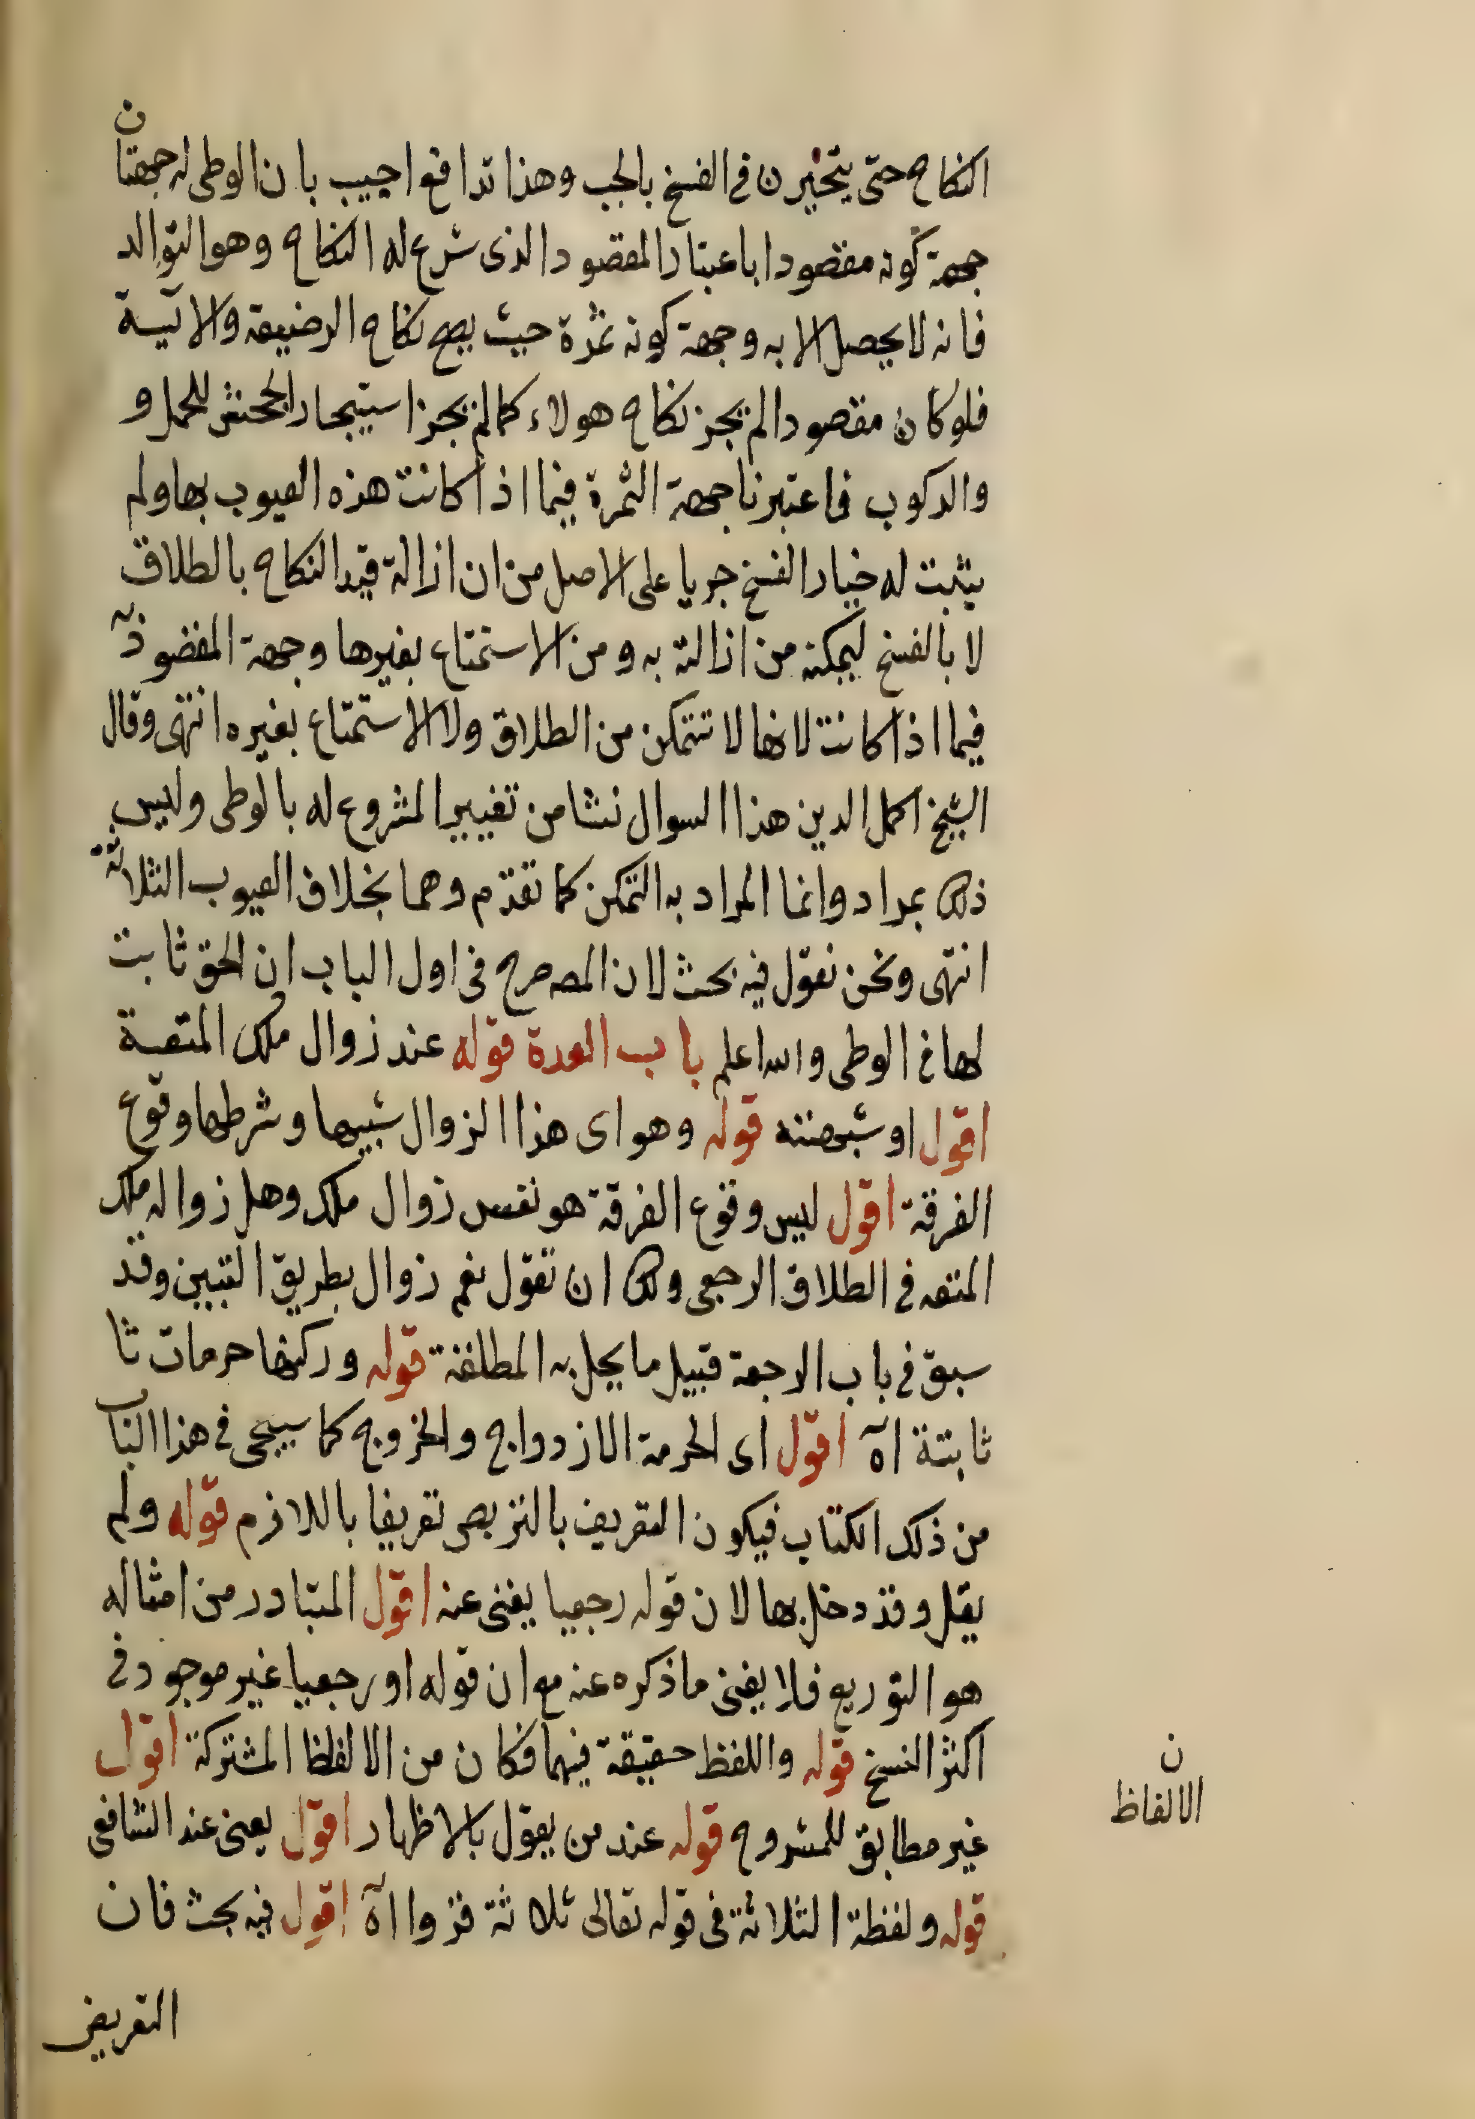 النكاح حتى يتخيرن في الفسخ بالجب وهذا تدافع اجيب بان الوطى له جهتان
جهة كونه مقصودا باعتبار المقصود الذى شرع له النكاح وهو التوالد
فانه لا يحصل الا به وجهة كونه ثمرة حيث يصح نكاح الرضيعة والآيسة
فلو كان مقصودا لم يجز نكاح هولاء كما لم يجز استيجار الجحش للحمل و
والركوب فاعتبرنا جهة الثمرة فيما اذا كانت هذه العيوب بها ولم
يثبت له خيار الفسخ جريا على الاصل من ان ازالة قيد النكاح بالطلاق
لا بالفسخ ليمكنه من ازالته به ومن الاستمتاع بغيرها وجهة المقصودية
فيما اذا كانت لانها لا تتمكن من الطلاق ولا الاستمتاع بغيره انتهى وقال
الشيخ اكمل الدين هذا السوال نشا من تغيير المشروع له بالوطى وليس
ذلك بمراد وانما المراد به التمكن كما تقدم وهما بخلاف العيوب الثلاثة
انتهى ونحن نقول فيه بحث لان المص صرح في اول الباب ان الحق ثابت
لها في الوطى والله اعلم باب العدة قوله عند زوال ملك المتعة
اقول او شبهته قوله وهو اى هذا الزوال سببها وشرطها وقوع
الفرقة اقول ليس وقوع الفرقة هو نفس زوال ملك وهل زواله ملك
المتعه في الطلاق الرجعى ولك ان تقول نعم زوال بطريق التبين وقد
سبق في باب الرجعة قبيل ما يحل به المطلقة قوله وركنها حرمات ثا
ثابتة اه اقول اى الحرمة الازدواج والخروج كما سيجى في هذا الباب
من ذلك الكتاب فيكون التعريف بالتربص تعريفا باللازم قوله ولم
يقل وقد دخل بها لان قوله رجعيا يغنى عنه اقول المتبادر من امثاله
هو التوريع فلا يغنى ما ذكره عنه مع ان قوله او رجعيا غير موجود في
اكثر النسخ قوله واللفظ حقيقة فيهما فكان من الالفظا المشتركة اقول
ن
الالفاظ
غير مطابق للمشروح قوله عند من يقول بالاظهار اقول يعنى عند الشافعى
قوله ولفظة الثلاثة في قوله تعالى ثلاثة قروا اه اقول فيه بحث فان
التعريف